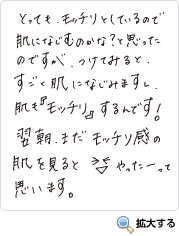 とっても、モッチリとしているので
肌になじむのかな？と思った
のですが、つけてみると、
すごく肌になじみますし、
肌も『モッチリ』するんです！
翌朝、まだモッチリ感の
肌を見ると やったーって
思います。
拡大する